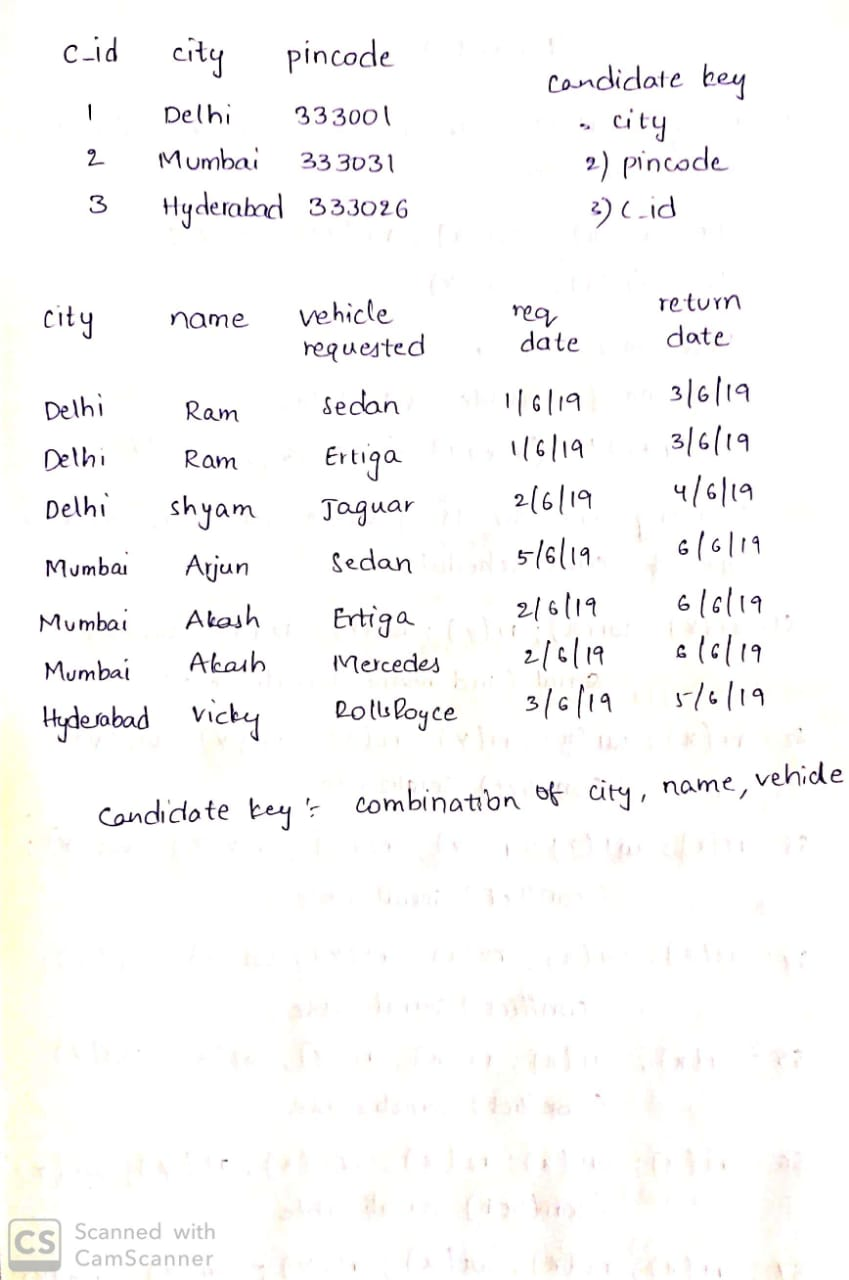 c_id city pincode
candidate key
1 Delhi 333001
city
2 Mumbai 333031
2) pincode
3 Hyderabad 333026
3) c_id
city name vehicle requested req date return date
Delhi Ram Sedan 1/6/19 3/6/19
Delhi Ram Ertiga 1/6/19 3/6/19
Delhi shyam Jaguar 2/6/19 4/6/19
Mumbai Arjun Sedan 5/6/19 6/6/19
Mumbai Akash Ertiga 2/6/19 6/6/19
Mumbai Akash Mercedes 2/6/19 6/6/19
Hyderabad vicky RollsRoyce 3/6/19 5/6/19
Candidate key :- combination of city, name, vehicle
CS Scanned with
CamScanner